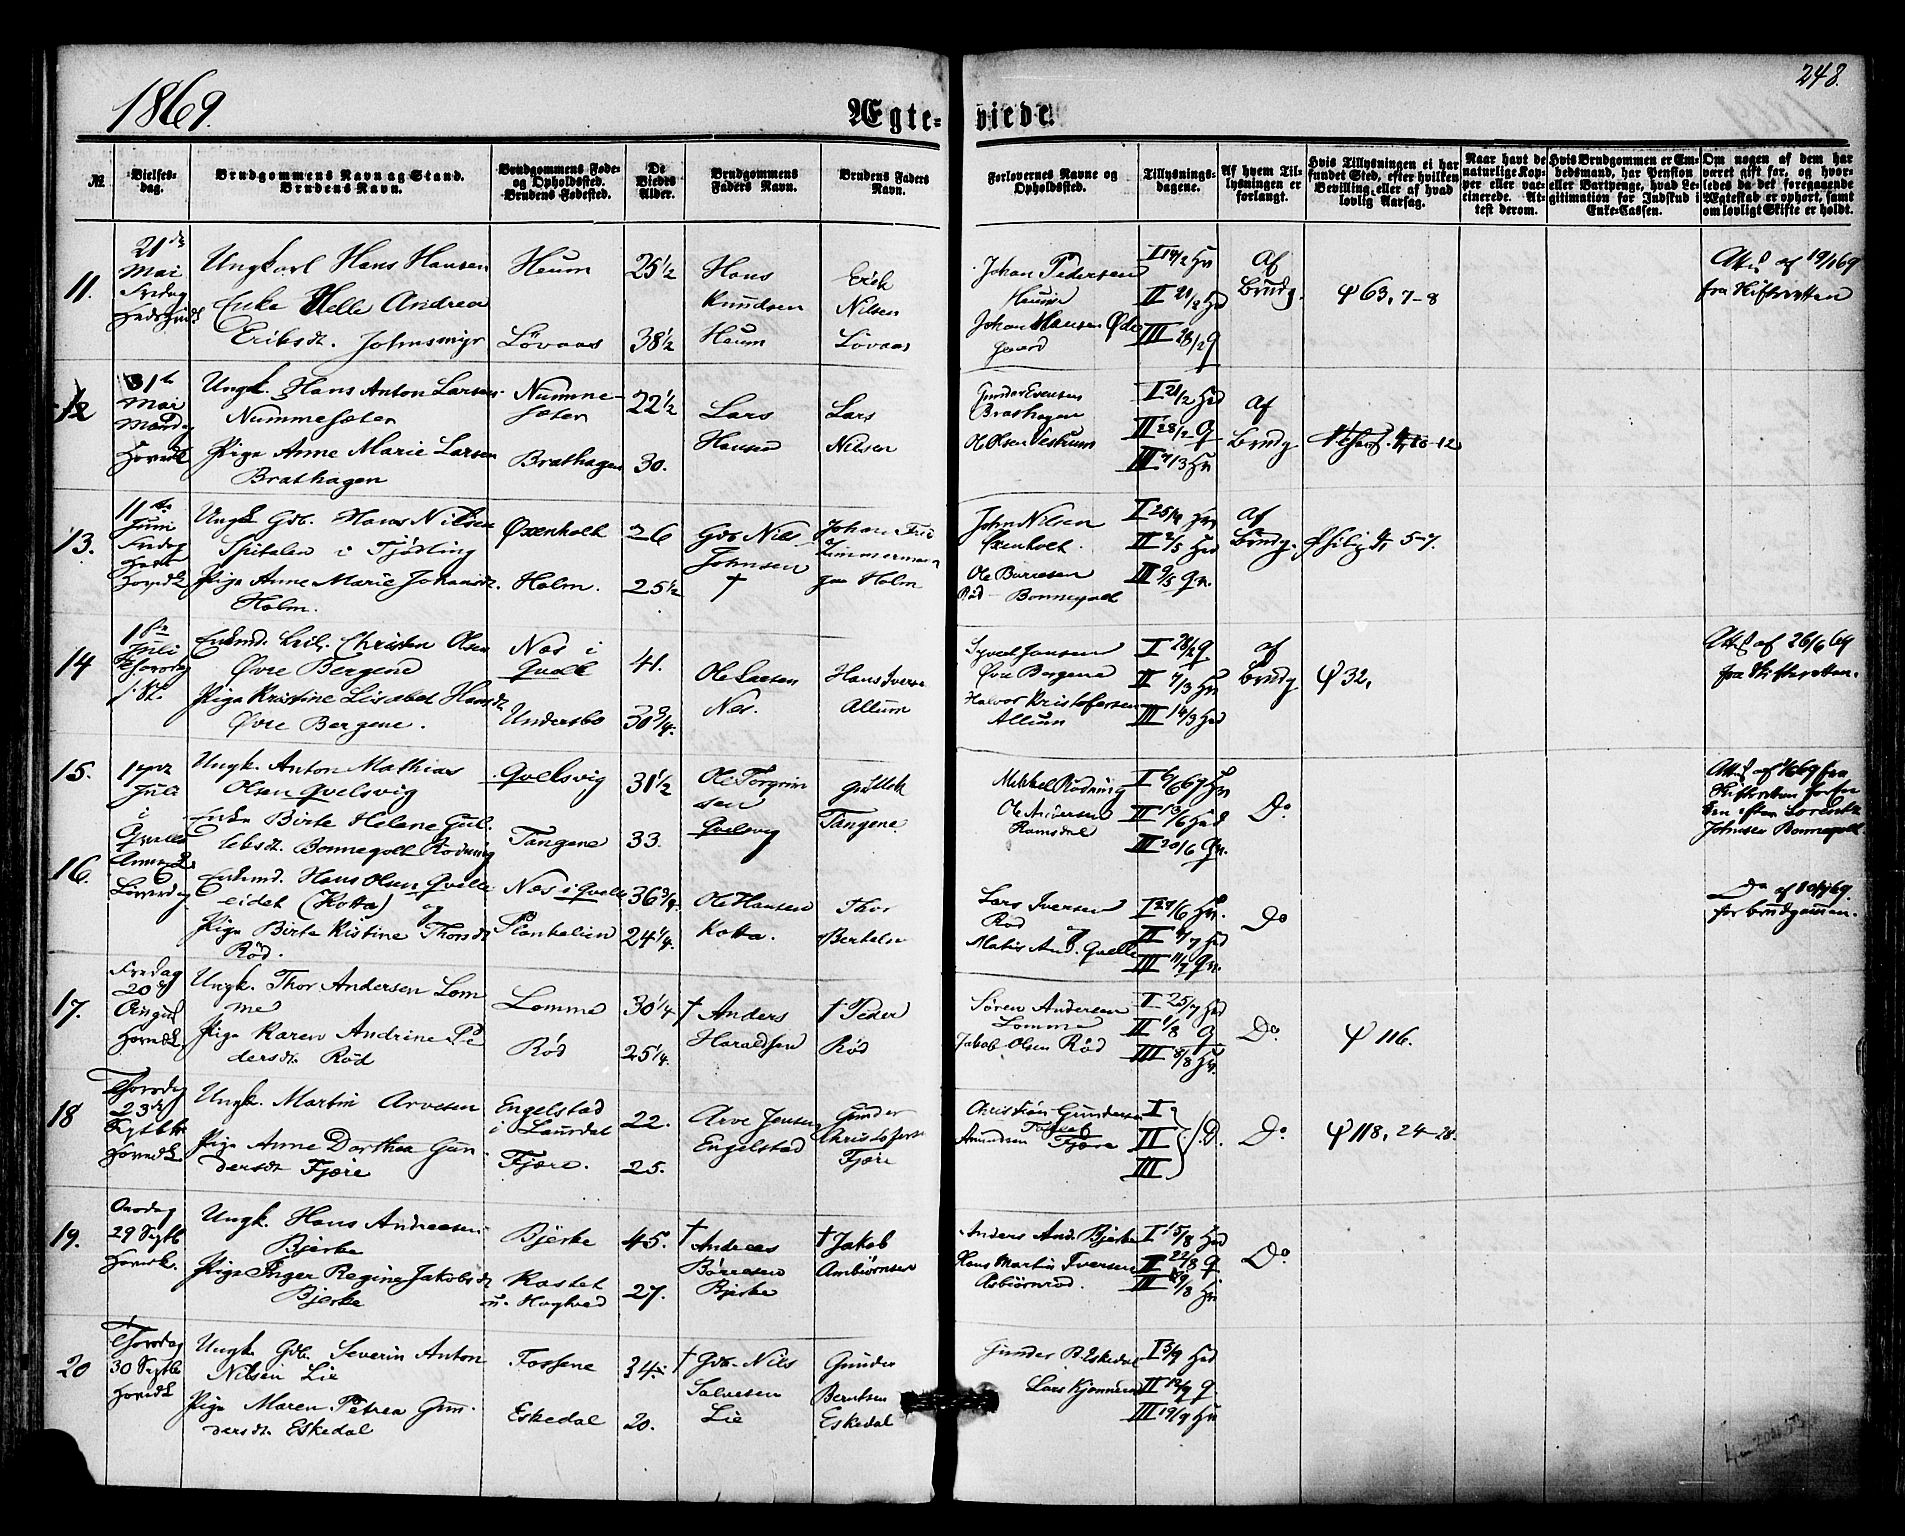 1869.
Ægte-
viede.
248.
№
Vielses-
dag.
Brudgommens Navn og Stand.
Brudens Navn.
Brudgommens Føde-
og Opholdssted.
Brudens Fødested.
De
Viedes
Alder.
Brudgommens
Faders Navn.
Brudens Faders
Navn.
Forlovernes Navne og
Opholdssted.
Tillysnings-
dagene.
Af hvem Til-
lysningen er
forlangt.
Hvis Tillysningen ei har
fundet Sted, efter hvilken
Bevilling eller af hvad
lovlig Aarsag.
Naar havt de
naturlige Kop-
per eller vac-
cinerede. At-
test derom.
Hvis Brudgommen er Em-
bedsmand, har Pension
eller Vartpenge, hvad Le-
gitimation for Indskud i
Enke-Cassen.
Om nogen af dem har
været gift før, og hvor-
ledes da det foregaaende
Ægtestad er ophørt, samt
om lovligt Skifte er holdt.
11.
21de
Mai
Fredag
Ungkarl Hans Hansen
Enke Helle Andrea
Eriksdt. Johnsmyr
Heum
Løvaas
25½
38½
Hans
Knudsen
Heum
Erik
Nilsen
Løvaas
Johan Pedersen
Heum
Johan Hansen Øde
gaard
I 14/2 Hv
II 21/2 Hed
III 28/2 Q
Af
Brudg.
Ψ 63, 7-8
Att. af 19/1 69
fra Skifteretten
12
31te
Mai
Mandag
Hovedk
Ungk. Hans Anton Larsen
Nummesæter
Pige Anne Marie Larsen
Brathagen
Numme-
sæter
Brathagen
22½
30.
Lars
Hansen
Lars
Nilsen
Gunder Evensen
Brathagen
Ole Olsen Vestrum
I 21/2 Hed
II 28/2 Q
III 7/3 Hv
Af
Brudg.
13.
11te
Juni
Fredag
Hovedk
Ungk Gdb. Hans Nilsen
Spitalen i Tjødling
Pige Anne Marie Johansdt.
Holm.
Oxenholt
Holm.
26
25½
Gdb Nils
Johnsen
†
Johan Fred
Timmermann
paa Holm
John Nilsen
Oxenholt.
Ole Borresen
Rød Bonnegolt
I 25/4 Hv
II 2/5 Hed
III 9/5 Qv.
Af
Brudg.
Philip. 4, 5-7.
14
1ste
Juli
Ekmd. Christen Olsen
Øvre Bergene
Pige Kristine Lisabet Hansdt
Øvre Bergene.
Næs i
Qvelle
Undersbo
41.
30¾.
Ole Larsen
Næs.
Hans Iversen
Allum
Syvert Jansen
Øvre Bergene
Halvor Kristofersen
Allum
I 28/2 Q
II 7/3 Hv
III 14/3 Hed
af
Brudg
Ψ 32,
Att. af 26/6 69
fra Skifteretten.
15.
17de
Juli
i
Qvelle
Ungk. Anton Mathias
Olsen Qvelsvig
Enke Birte Helene Gul-
leksdt. Bonnegolt Rødning
Qvelsvig
Tangene
31½
33.
Ole Torgrim
sen
Qvelsvig
Gullek
Tangene
Mikkel Rødning
Ole Andersen
Ramsdal
I 6/6 69 Hv
II 13/6 Hed
III 20/6 Qv.
Do.
Johnsen Bonnegolt
16.
Løverdag
Enkemd. Hans Olsen Qvelle
eidet (Kotta) og
Pige Birte Kistine Thorsdt
Rød.
Næs i Qvelle
Plankelien
36¾.
24¼.
Ole Hansen
Kotta.
Thor
Bertelsen
Lars Iversen
Rød
Matis And. Qvelle
I 27/6 Hv.
II 4/7 Hed
III 11/7 Qv.
Do
Do af 10/7 69.
for brudgommen.
17.
Fredag
20de
August
Hovedk.
Ungk. Thor Andersen Lom
me
Pige Karen Andrine Pe
dersdt Rød
Lomme
Rød
30¼
25¼.
† Anders
Haraldsen
† Peder
Rød
Søren Andersen
Lomme
Jakob Olsen Rød
I 25/7 Hed
II 1/8 Q
III 8/8 Hv.
Do.
Ψ 116.
18
Thorsdag
23de
Septbr
Hovedk.
Ungk. Martin Arvesen
Pige Anne Dorthea Gun
dersdt Fjære
Engelstad
i Laurdal
Fjære.
22.
25.
Arve Jensen
Engelstad
Gunder
Christofersen
Fjære
Christian Gundersen
Amundsen Fjære
I
II
III
Do.
Ψ 118, 24-28.
19.
Onsdag
29 Septb
Hovedk.
Ungk. Hans Andreasen
Bjerke
Pige Inger Regine Jakobsdt
Bjerke
Bjerke
Kastet
u. Hogtved
45.
27.
† Andreas
Børresen
Bjerke
† Jakob
Ambiørnsen
Anders And. Bjerke
Hans Martin Iversen
Asbiørnrød.
I 15/8 Hed
II 22/8 Q
III 29/8 Hv
Do.
20
Thorsdag
30 Septb
Hovedk
Ungk. Gdb. Severin Anton
Nilsen Lie
Pige Maren Petrea Gun-
dersdt. Eskedal
Fossene
Eskedal
34.
20.
† Gdb. Nils
Salvesen
Lie
Gunder
Berntsen
Eskedal
Gunder B. Eskedal
Lars Kjønnerød
I 5/9 Hed
II 12/9 Q.
III 19/9 Hv